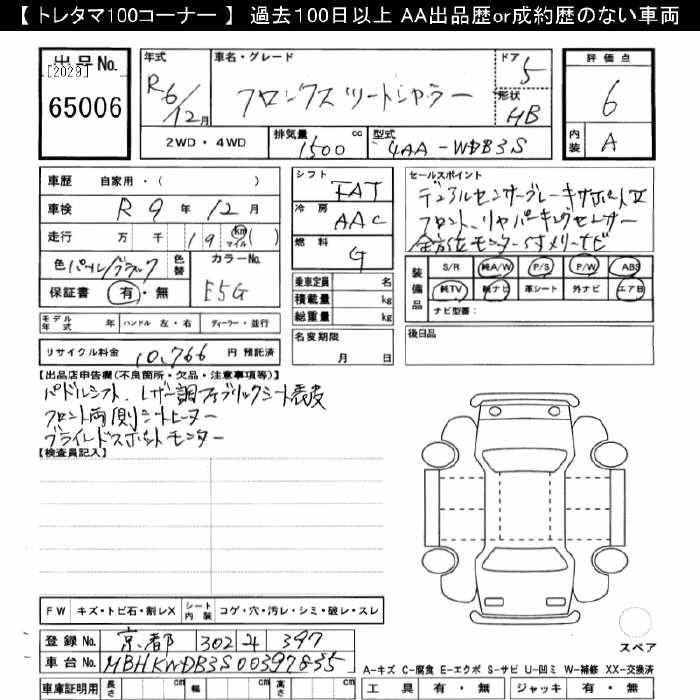 【 トレタマ100コーナー 】 過去100日以上 AA出品歴or成約歴のない車両
出品No.
[2029]
65006
年式
R6/12月
車名・グレード
フロンクス ツートンカラー
ドア 5
形状 HB
評価点
6
内装 A
2WD・4WD
排気量 1500 cc
型式 4AA-WDB3S
車歴 自家用・( )
車検 R 9 年 12 月
走行 万 千 19 km マイル ( )
色 パール/ブラック 色替
カラーNo. E5G
保証書 有・無
シフト FAT
冷房 AAC
燃料 G
乗車定員 名
積載量 kg
総重量 kg
セールスポイント
デュアルセンサーブレーキサポートⅡ
フロント、リヤパーキングセンサー
全方位モニター付メモリーナビ
装備品 S/R 純A/W P/S P/W ABS
純TV 純ナビ 革シート 外ナビ エアB
ナビ型番:
モデル年式 年 ハンドル 左・右 ディーラー・並行
名変期限
月 日
後日品
リサイクル料金 10,766 円 預託済
【出品店申告欄(不良箇所・欠品・注意事項等)】
パドルシフト、レザー調ファブリックシート表皮
フロント両側シートヒーター
ブラインドスポットモニター
【検査員記入】
FW キズ・トビ石・割レX シート内装 コゲ・穴・汚レ・シミ・破レ・スレ
登録No. 京都 302 397
車台No. MBHKWDB3S00397855
スペア
A-キズ C-腐食 E-エクボ S-サビ U-凹ミ W-補修 XX-交換済
車庫証明用 長さ cm 幅 cm 高さ cm
工具 有・無 ジャッキ 有・無